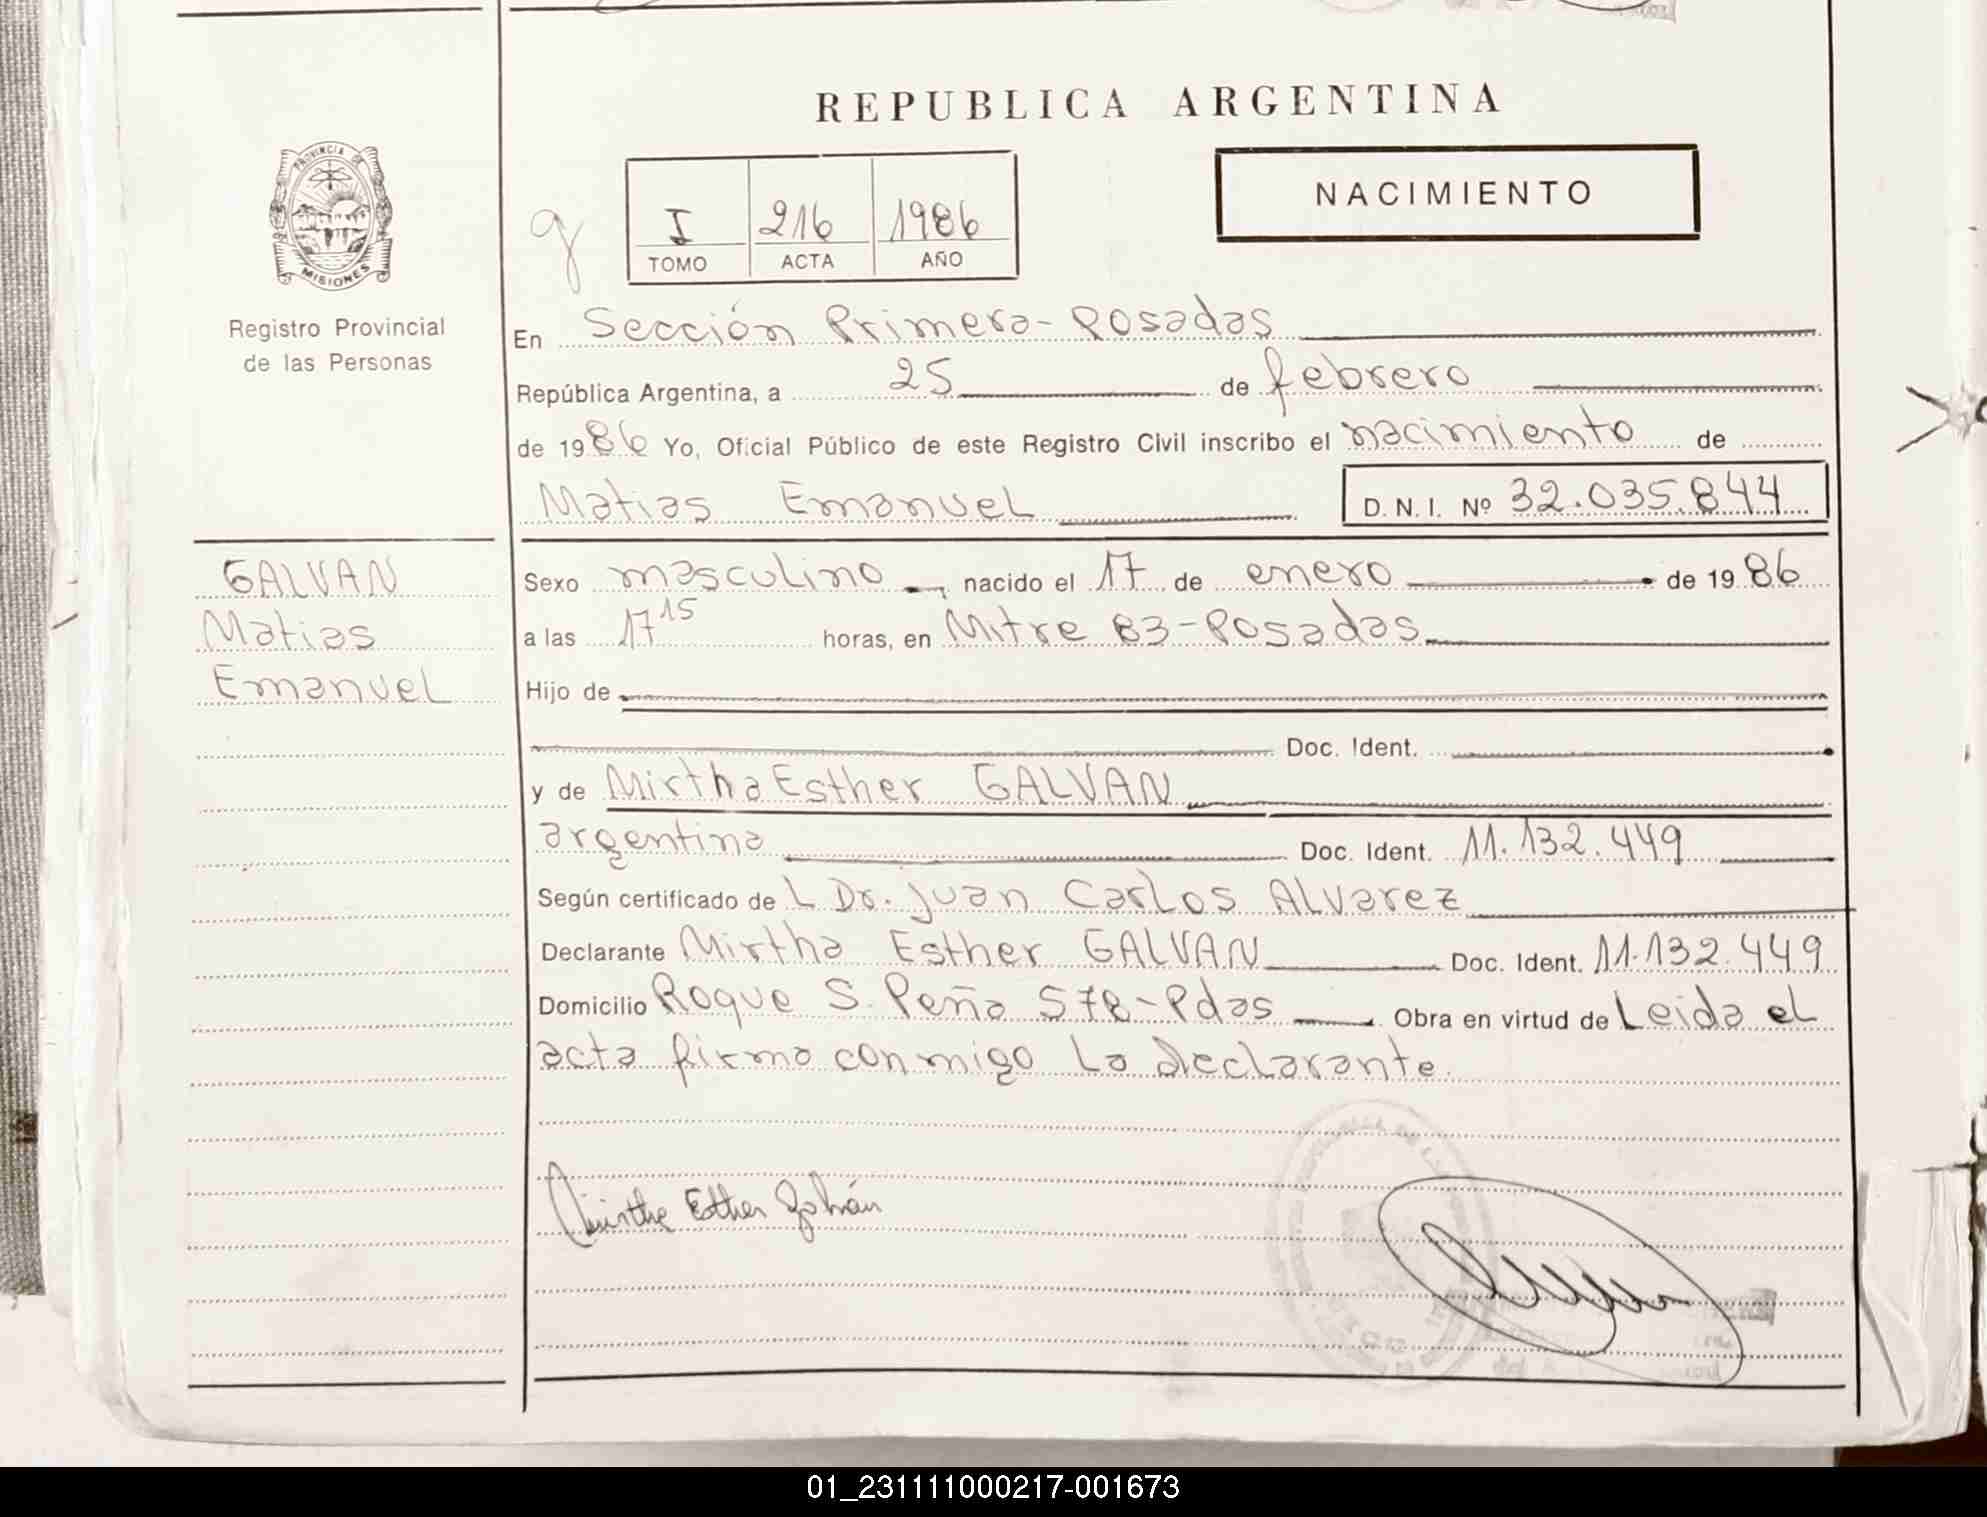 REPUBLICA ARGENTINA
PROVINCIA DE
MISIONES
Registro Provincial
de las Personas
I 216 1986
TOMO ACTA AÑO
NACIMIENTO
En Sección Primera-Posadas
República Argentina, a 25 de febrero
de 1986 Yo, Oficial Público de este Registro Civil inscribo el nacimiento de
Matias Emanuel D. N. I. Nº 32.035.844
GALVAN
Matias
Emanuel
Sexo masculino, nacido el 17 de enero de 1986
a las 17 15 horas, en Mitre 83-Posadas
Hijo de
Doc. Ident.
y de Mirtha Esther GALVAN
argentina Doc. Ident. 11.132.449
Según certificado de L Dr. Juan Carlos Alvarez
Declarante Mirtha Esther GALVAN Doc. Ident. 11.132.449
Domicilio Roque S. Peña 578-Pdas Obra en virtud de Leida el
acta firma conmigo la declarante.
Mirtha Esther Galván
01_231111000217-001673